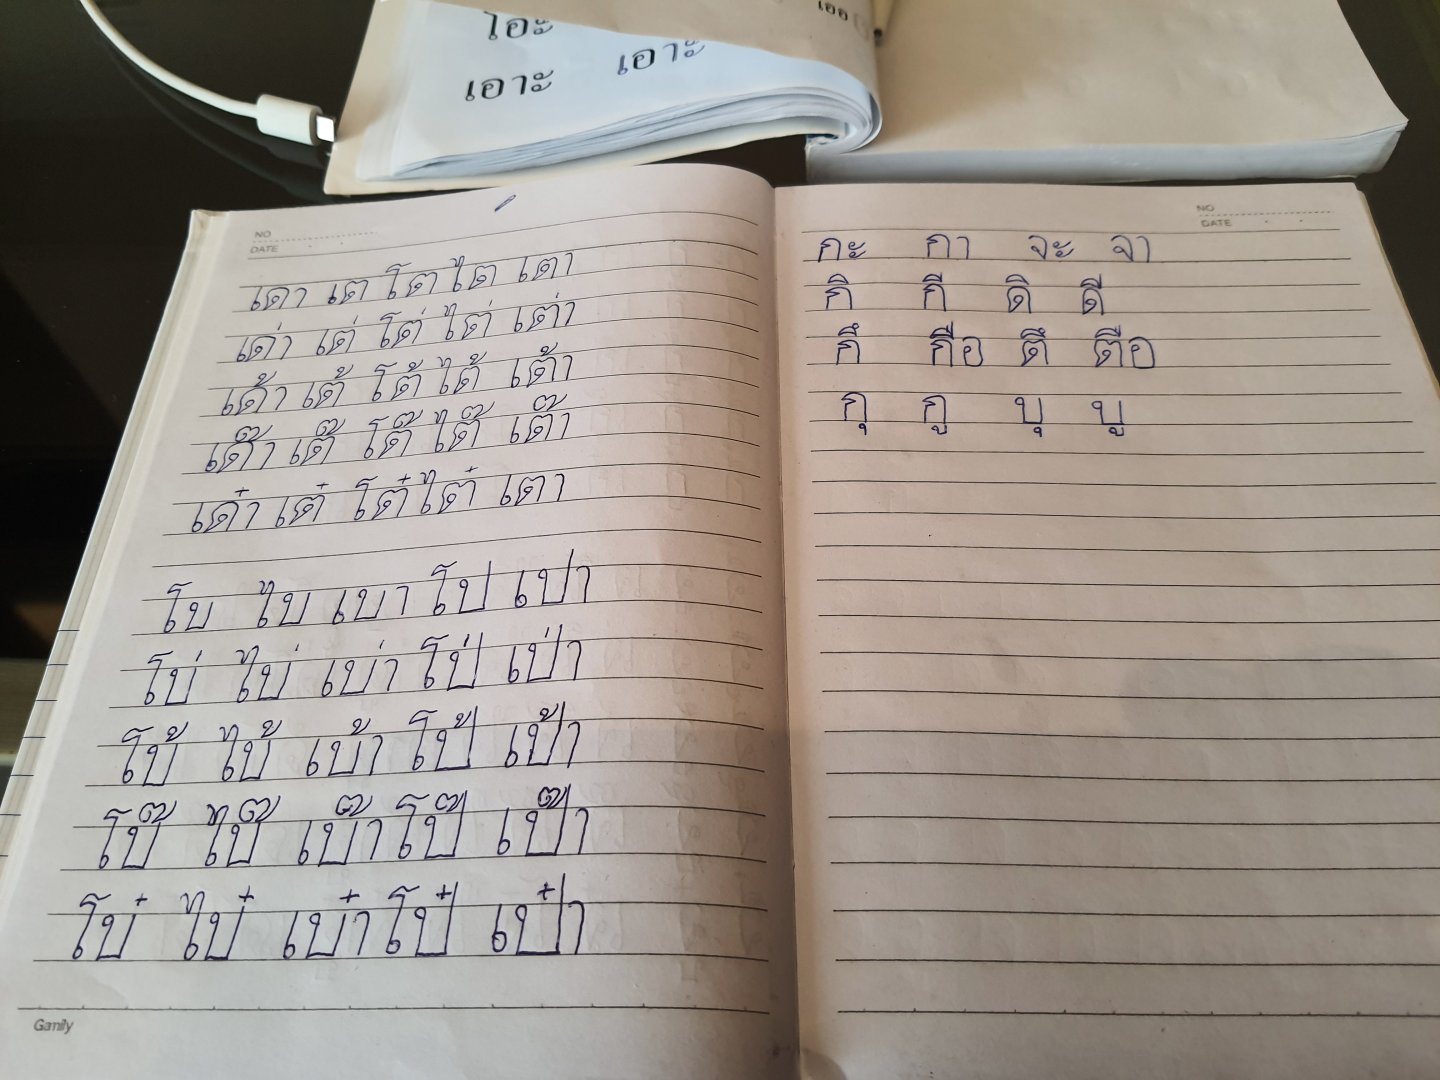 โอะ
เออ
เอาะ เอาะ
NO
DATE
เดา เต โต ไต เตา
เด่า เต่ โต่ ไต่ เต่า
เด้า เต้ โต้ ไต้ เต้า
เด๊า เต๊ โต๊ ไต๊ เต๊า
เด๋า เต๋ โต๋ ไต๋ เตา
โบ ไบ เบา โป เปา
โบ่ ไบ่ เบ่า โป่ เป่า
โบ้ ไบ้ เบ้า โป้ เป้า
โบ๊ ไบ๊ เบ๊า โป๊ เป๊า
โบ๋ ไบ๋ เบ๋า โป๋ เป๋า
Gamily
NO
DATE
กะ กา จะ จา
กิ กี ดิ ดี
กึ กือ ตึ ตือ
กุ กู บุ บู